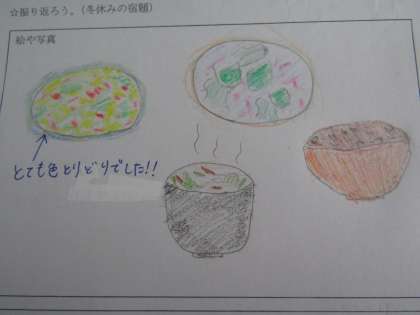 ☆振り返ろう。(冬休みの宿題)
絵や写真
とても色とりどりでした!!